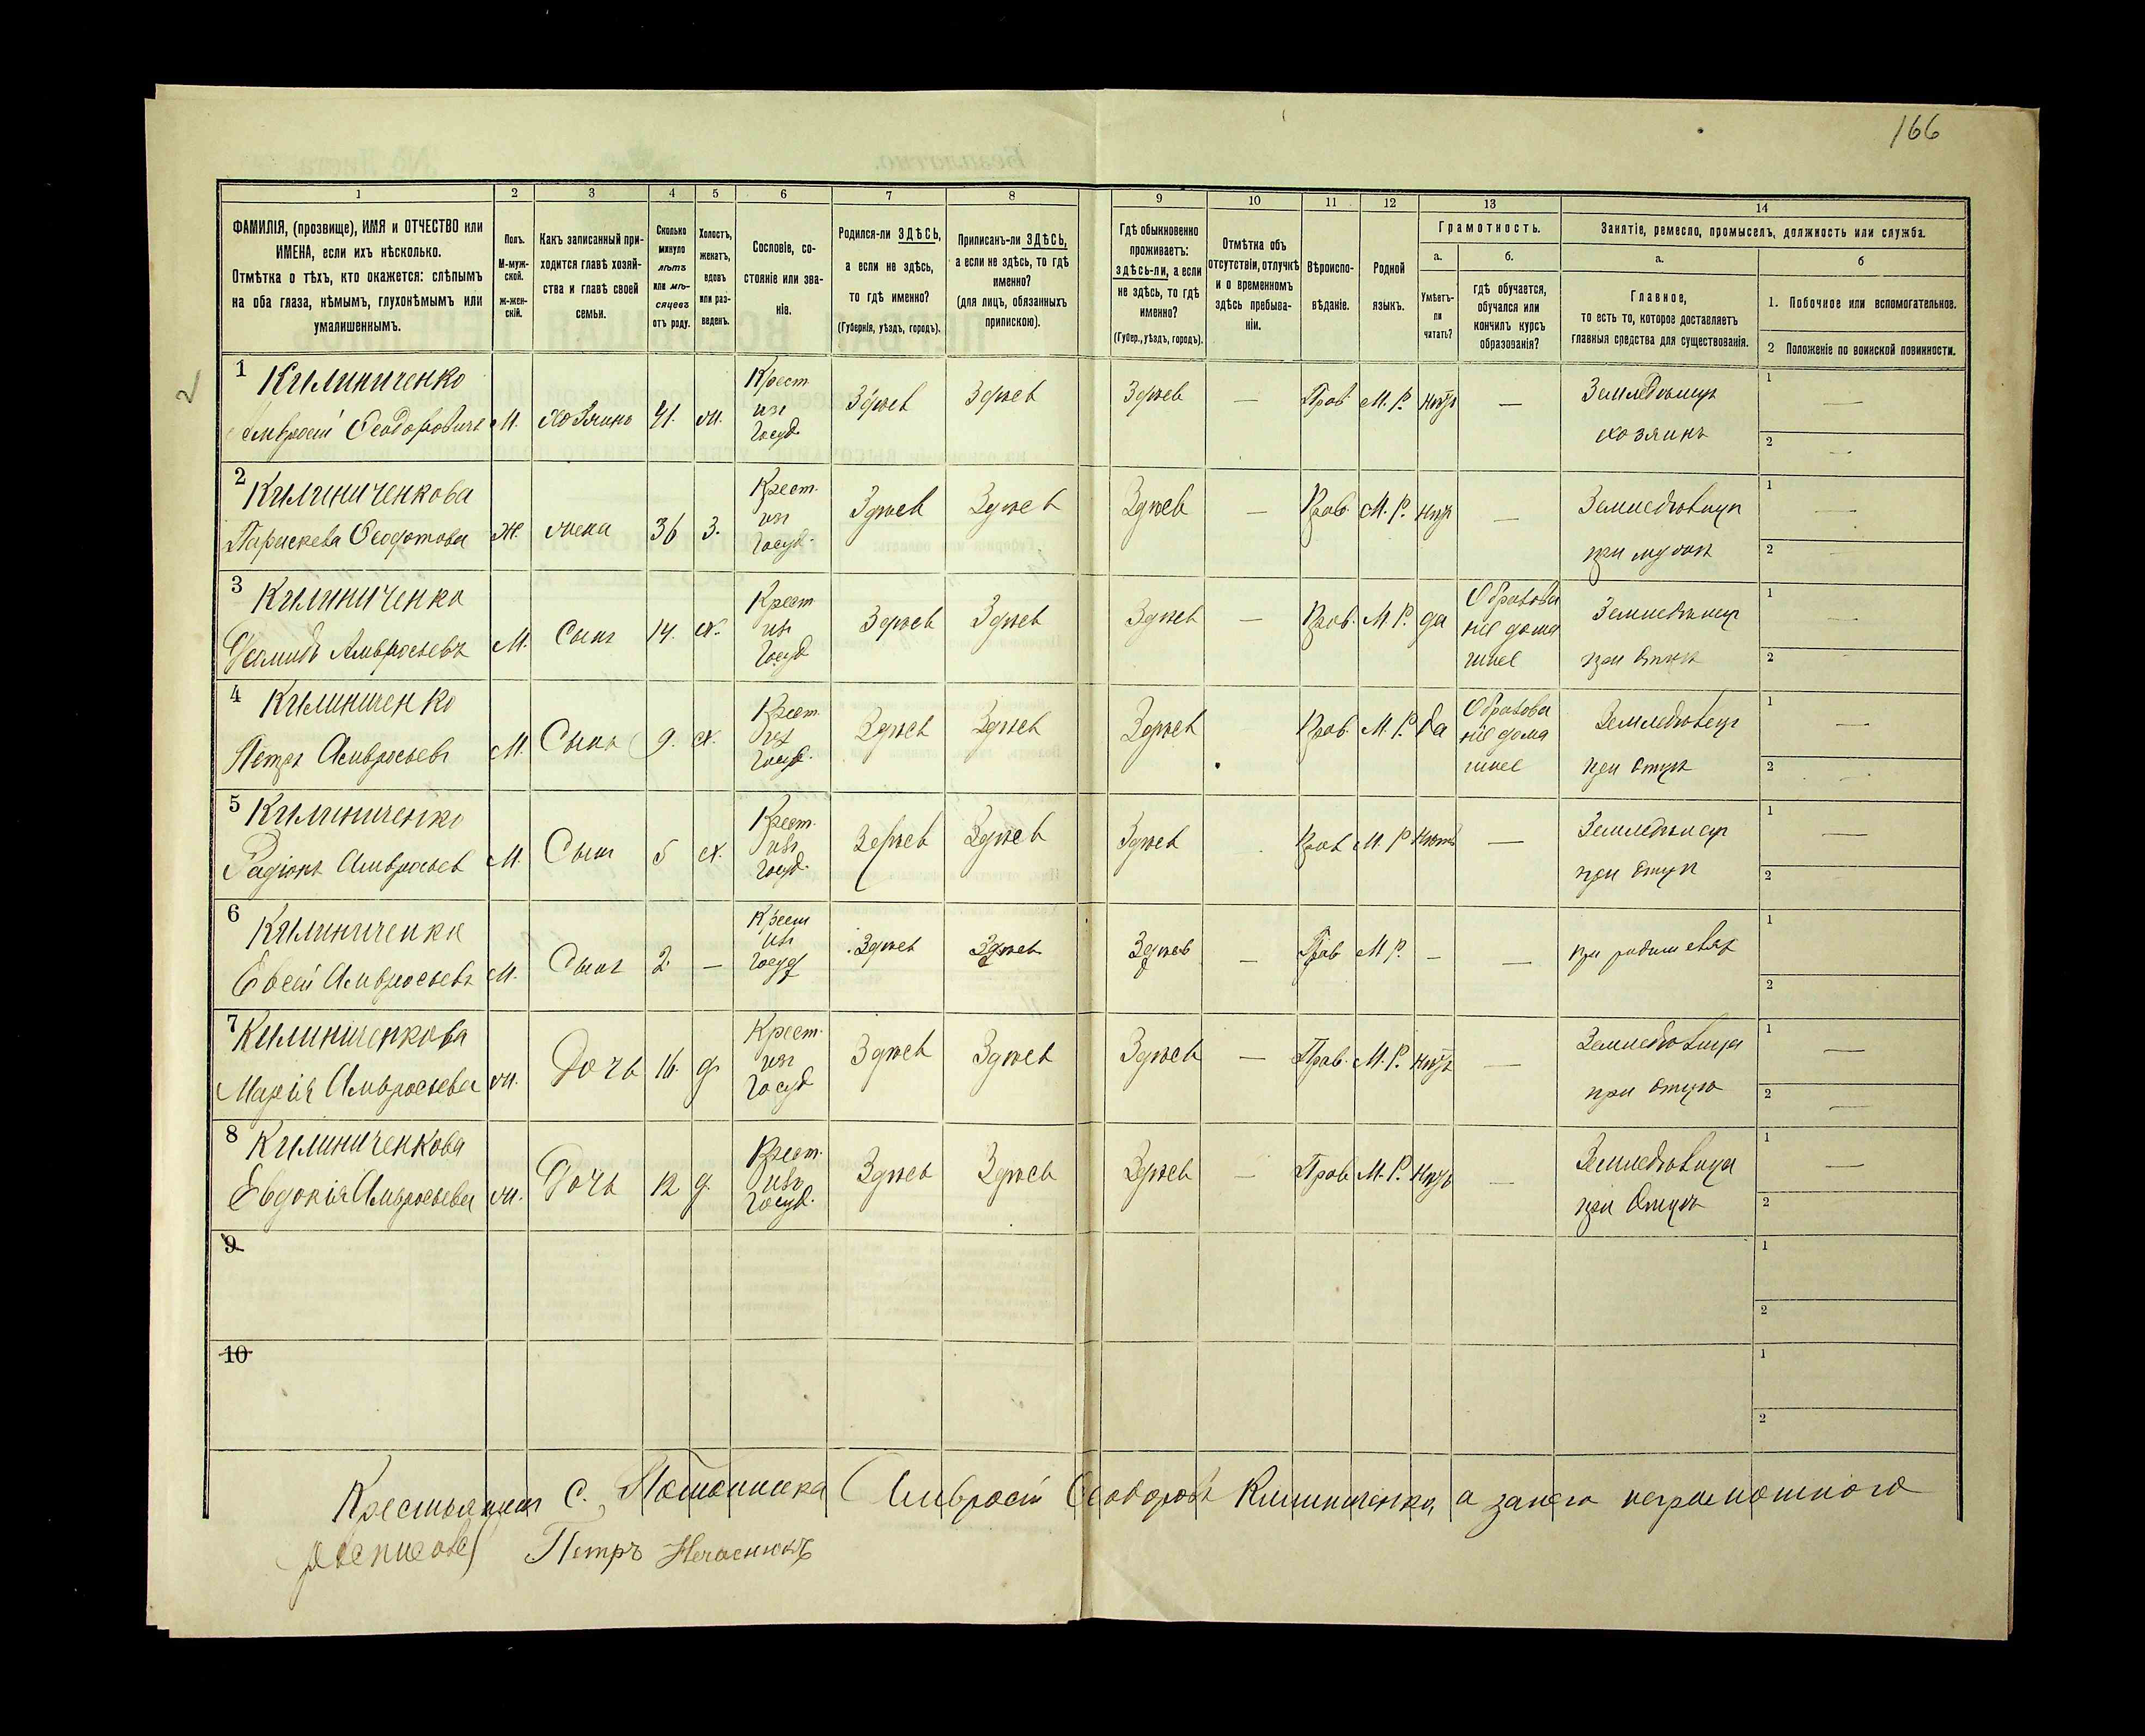 166
1 2 3 4 5 6 7 8 9 10 11 12 13 14
ФАМИЛІЯ, (прозвище), ИМЯ и ОТЧЕСТВО или
ИМЕНА, если ихъ нѣсколько.
Отмѣтка о тѣхъ, кто окажется: слѣпымъ
на оба глаза, нѣмымъ, глухонѣмымъ или
умалишеннымъ.
Полъ.
М-муж-
ской.
Ж-жен-
скій.
Какъ записанный при-
ходится главѣ хозяй-
ства и главѣ своей
семьи.
Сколько
минуло
лѣтъ
или мѣ-
сяцевъ
отъ роду.
Холостъ,
женатъ,
вдовъ
или раз-
веденъ.
Сословіе, со-
стояніе или зва-
ніе.
Родился-ли ЗДѢСЬ,
а если не здѣсь,
то гдѣ именно?
(Губернія, уѣздъ, городъ).
Приписанъ-ли ЗДѢСЬ,
а если не здѣсь, то гдѣ
именно?
(для лицъ, обязанныхъ
припискою).
Гдѣ обыкновенно
проживаетъ:
здѣсь-ли, а если
не здѣсь, то гдѣ
именно?
(Губер., уѣздъ, городъ).
Отмѣтка объ
отсутствіи, отлучкѣ
и о временномъ
здѣсь пребыва-
ніи.
Вѣроиспо-
вѣданіе.
Родной
языкъ.
Грамотность.
а.
Умѣетъ-
ли
читать?
б.
гдѣ обучается,
обучался или
кончилъ курсъ
образованія?
Занятіе, ремесло, промыселъ, должность или служба.
а.
Главное,
то есть то, которое доставляетъ
главныя средства для существованія.
б
1. Побочное или вспомогательное.
2 Положеніе по воинской повинности.
2
1 Килиниченко
Амвросій Ѳеодоровичъ М. хозяинъ 41. ж. Крест. изъ Госуд. Здѣсь Здѣсь Здѣсь — Прав. М. Р. нѣтъ — Земледѣлецъ
хозяинъ
1 —
2 —
2 Килиниченкова
Параскева Ѳеодотова Ж. жена 36 З. Крест. изъ Госуд. Здѣсь Здѣсь Здѣсь — Прав. М. Р. нѣтъ — Земледѣлица
при мужѣ
1 —
2 —
3 Килиниченко
Амвросьевъ М. Сынъ 14. х. Крест. изъ Госуд. Здѣсь Здѣсь Здѣсь — Прав. М. Р. да Образова
ніе дома
Земледѣлецъ
при отцѣ
1 —
2
4 Килиниченко
Петръ Амвросьевъ М. Сынъ 9. х. Крест. изъ Госуд. Здѣсь Здѣсь Здѣсь Прав. М. Р. да Образова
ніе дома
Земледѣлецъ
при отцѣ
1 —
2
5 Килиниченко
Радіонъ Амвросьев М. Сынъ 5 х. Крест. изъ Госуд. Здѣсь Здѣсь Здѣсь Прав М. Р нѣтъ — Земледѣлецъ
при отцѣ
1 —
2
6 Килиниченко
Евсей Амвросьевъ М. Сынъ 2. — Крест изъ Госуд Здѣсь Здѣсь Здѣсь — Прав М Р. - — при родителяхъ
1
2
7 Килиниченкова
Марія Амвросьева ж. Дочь 16. д. Крест. изъ Госуд Здѣсь Здѣсь Здѣсь — Прав. М. Р. нѣтъ — Земледѣлица
при отцѣ
1 —
2 —
8 Килиниченкова
Евдокія Амвросьева ж. Дочь 12 д. Крест. изъ Госуд. Здѣсь Здѣсь Здѣсь — Прав М. Р. нѣтъ — Земледѣлица
при отцѣ
1 —
2
9
1
2
10
1
2
Крестьянин С. Амвросій Ѳеодоровъ Килиниченко, а за него неграмотного
росписовс Петръ